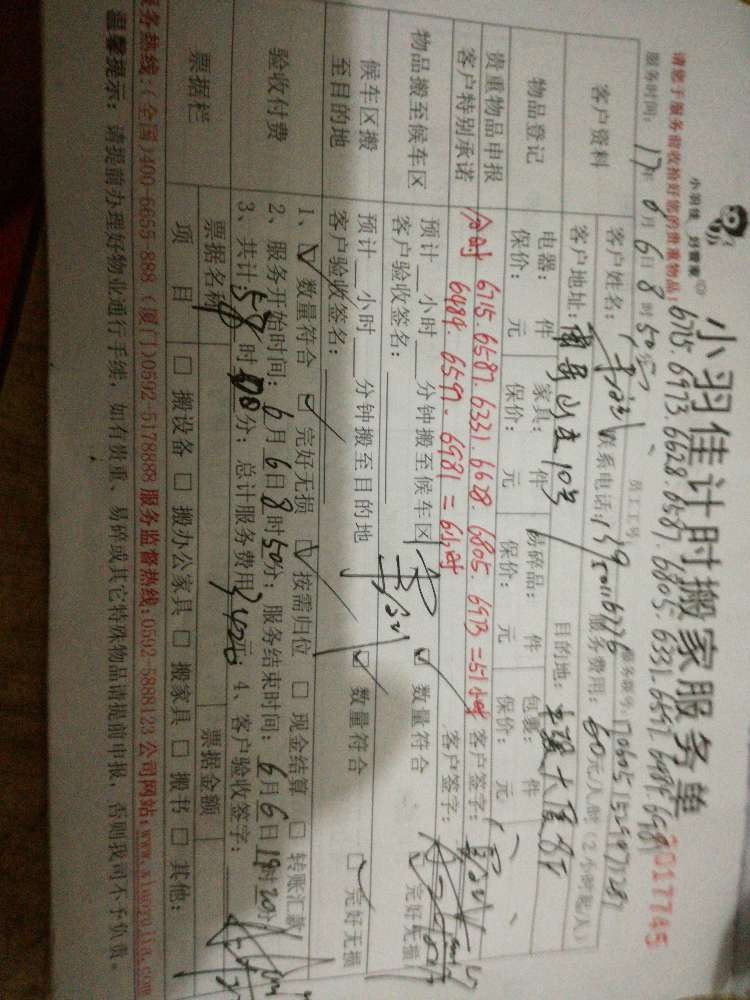 小羽佳计时搬家服务单
小羽佳 好管家
2017745
请您于服务前收拾好您的贵重物品！
6715.6973.6628.6587.6805.6331.6597.6484.6981
服务时间：17年 6月 6日 8时 50分
员工工号：
服务票号：
客户资料
客户姓名：
联系电话：
服务费用：60元/人/时（2小时起/人）
客户地址：
目的地：
物品登记
电器： 件 家具： 件 易碎品： 件 包裹： 件
保价： 元 保价： 元 保价： 元 保价： 元
贵重物品申报
客户特别承诺
合时 6715.6587.6331.6628.6805.6973=51小时
6484.6597.6981=6小时
客户签字：
客户签字：
物品搬至候车区
预计 小时 分钟搬至候车区 ☑ 数量符合 ☑ 完好无损
客户验收签名：
候车区搬
至目的地
预计 小时 分钟搬至目的地 ☑ 数量符合 ☑ 完好无损
客户验收签名：
验收付费
1、☑ 数量符合 ☑ 完好无损 ☑ 按需归位 □ 现金结算 □ 转账汇款
2、服务开始时间：6月6日8时50分；服务结束时间：6月6日19时20分
3、共计：58时 分；总计服务费用 元；4、客户验收签字：
票据栏
票据名称
票据金额
项 目
□ 搬设备 □ 搬办公家具 □ 搬家具 □ 搬书 □ 其他：
服务热线：（全国）400-6655 888（厦门）0592-5178888 服务监督热线：0592-5888123 公司网站：www.xiaoyujia.com
温馨提示：请提前办理好物业通行手续，如有贵重、易碎或其它特殊物品请提前申报，否则我司不予负责。